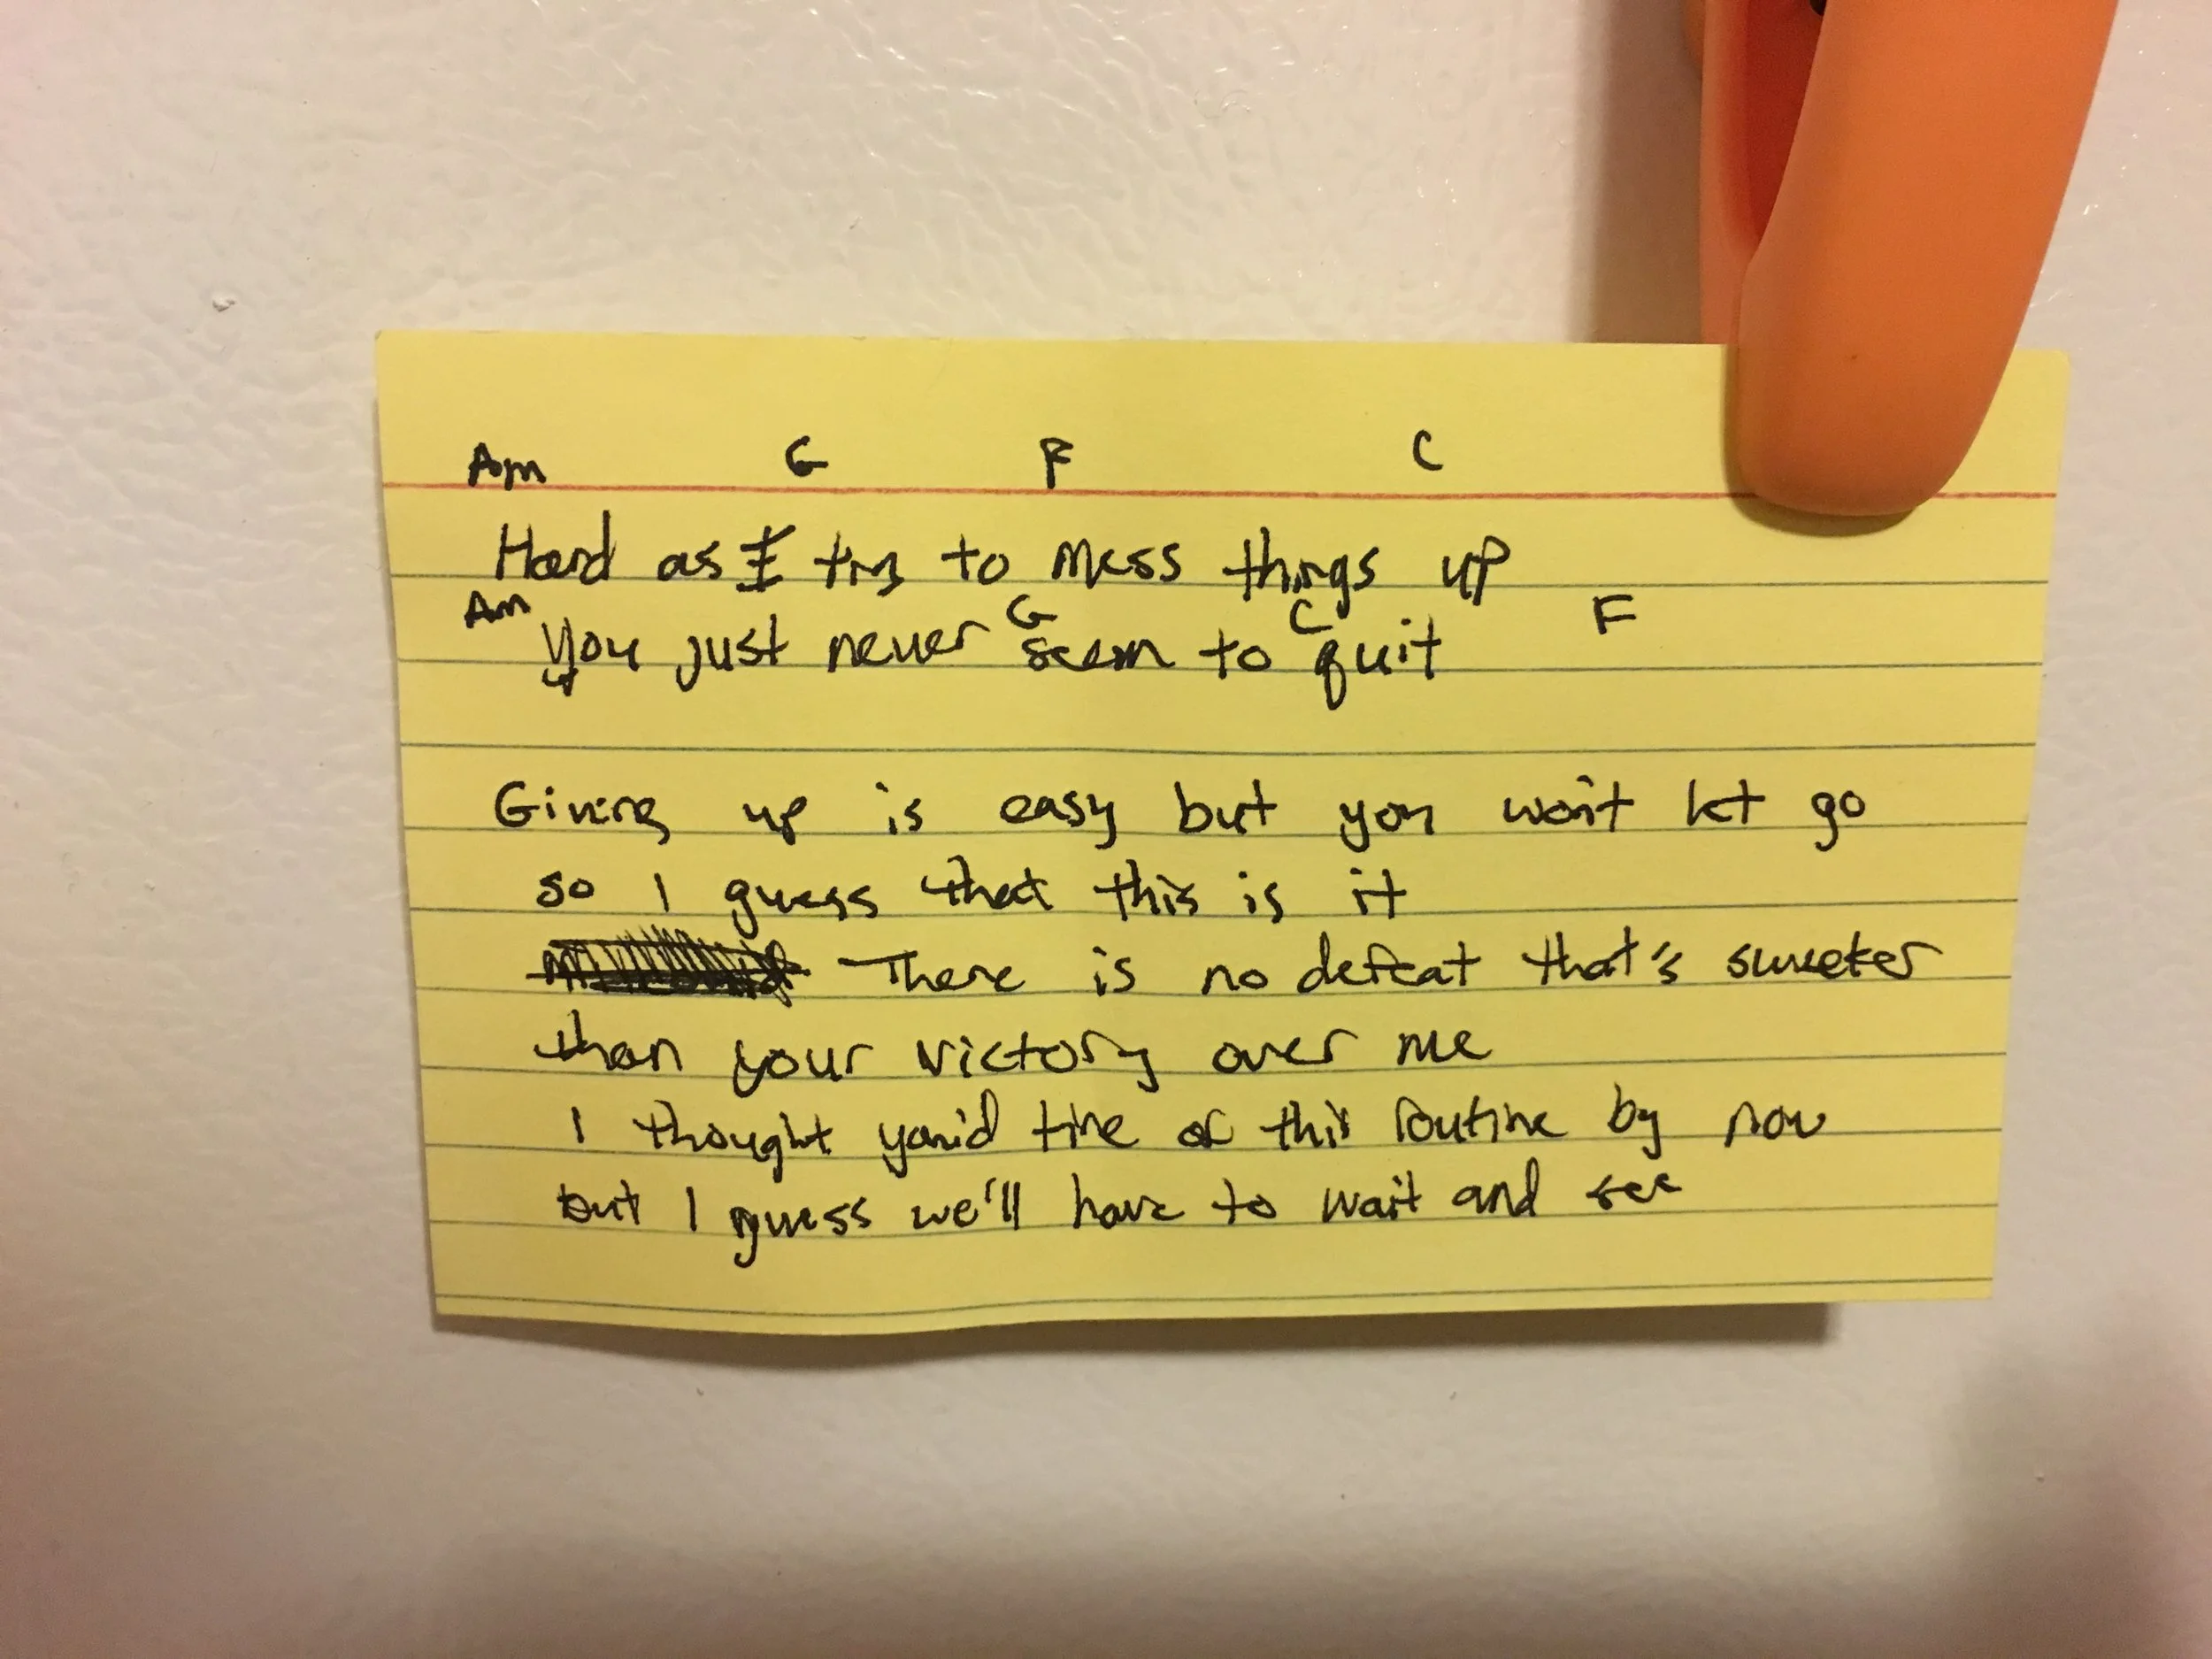 Am G F C
Hard as I try to mess things up
Am G C F
you just never seem to quit
Giving up is easy but you won't let go
so I guess that this is it
There is no defeat that's sweeter
than your victory over me
I thought you'd tire of this routine by now
but I guess we'll have to wait and see